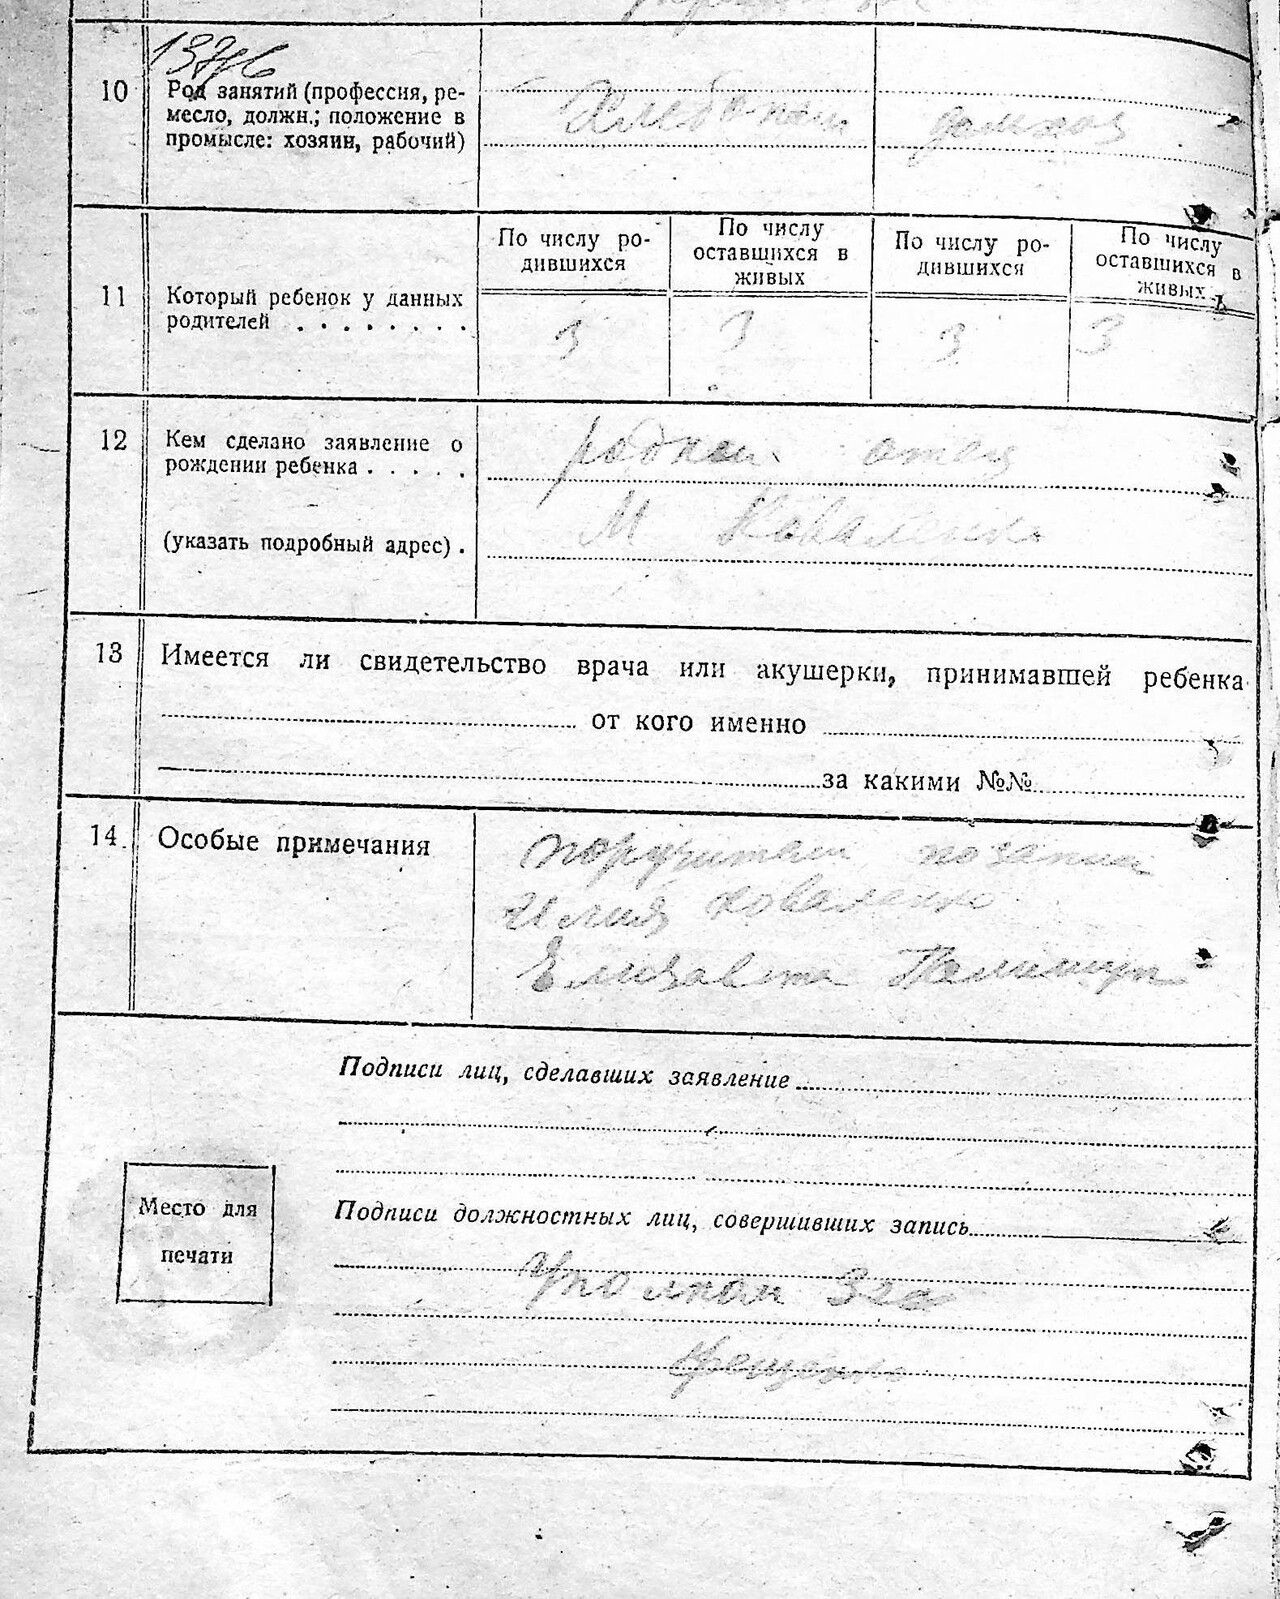 10 Род занятий (профессия, ре-
месло, должн.; положение в
промысле: хозяин, рабочий)
Хлебопаш домхоз
11 Который ребенок у данных
родителей . . . . . . . .
По числу ро-
дившихся
По числу
оставшихся в
живых
По числу ро-
дившихся
По числу
оставшихся в
живых
3 3 3 3
12 Кем сделано заявление о
рождении ребенка . . . . .
родной отец
(указать подробный адрес) .
М Коваленко
13 Имеется ли свидетельство врача или акушерки, принимавшей ребенка
от кого именно
за какими №№
14. Особые примечания
Илия Коваленко
Елизавета
Подписи лиц, сделавших заявление
Место для
печати
Подписи должностных лиц, совершивших запись
Уполном